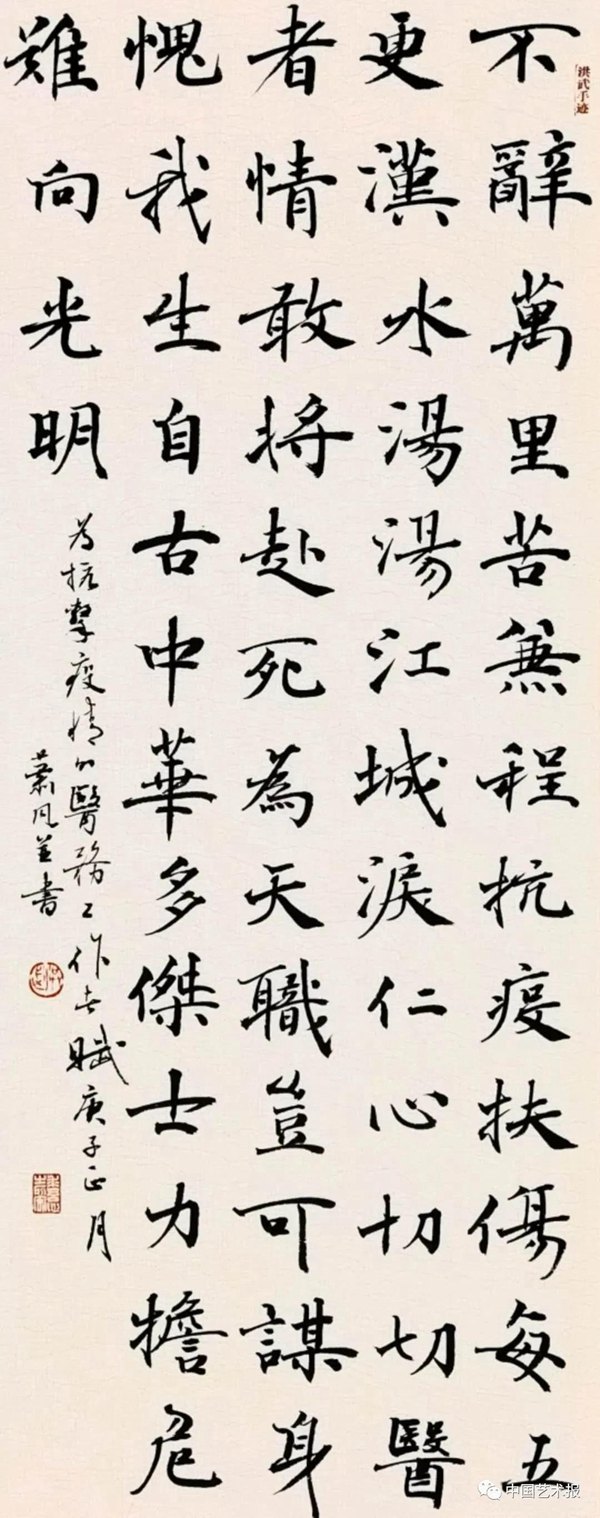 洪武手迹
不辭萬里苦兼程抗疫扶傷每五
更漢水湯湯江城淚仁心切切醫
者情敢將赴死為天職豈可謀身
愧我生自古中華多傑士力擔危
難向光明
為抗擊疫情的醫務工作者賦庚子正月
并書
中国艺术报